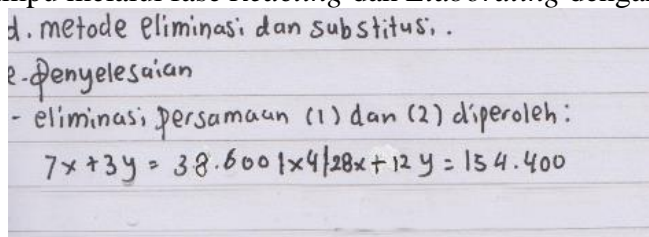 d. metode eliminasi dan substitusi.
e. Penyelesaian
- eliminasi persamaan (1) dan (2) diperoleh :
7x + 3y = 38.600 |x4| 28x + 12 y = 154.400